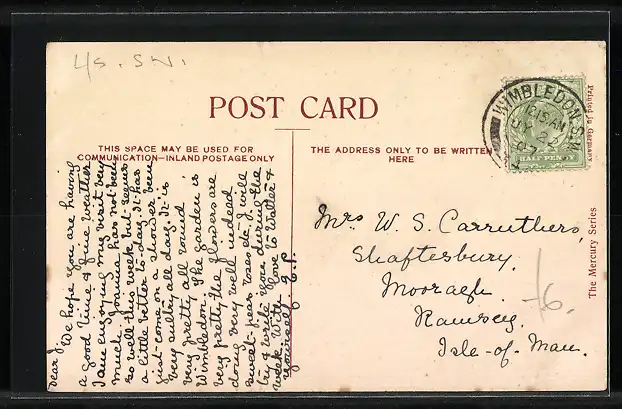 4/s. S.W.
POST CARD
THIS SPACE MAY BE USED FOR
COMMUNICATION—INLAND POSTAGE ONLY
THE ADDRESS ONLY TO BE WRITTEN
HERE
WIMBLEDON. S.W
12.15 AM
22
07
HALF PENNY
Printed in Germany
The Mercury Series
Dear J.
We hope you are having
a good time & fine weather
I am enjoying my visit very
much. has not been
so well this week but seems
a little better to-day. It has
just come on a shower been
very sultry all day. It is
very pretty all round
Wimbledon. The garden is
very pretty the flowers are
doing very well indeed
sweet-peas roses etc. I will
try & write you during the
week. With love to Walter &
yourself
Mrs W. S. Carruthers,
Shaftesbury,
Mooragh,
Ramsey,
Isle-of-Man.
/6.